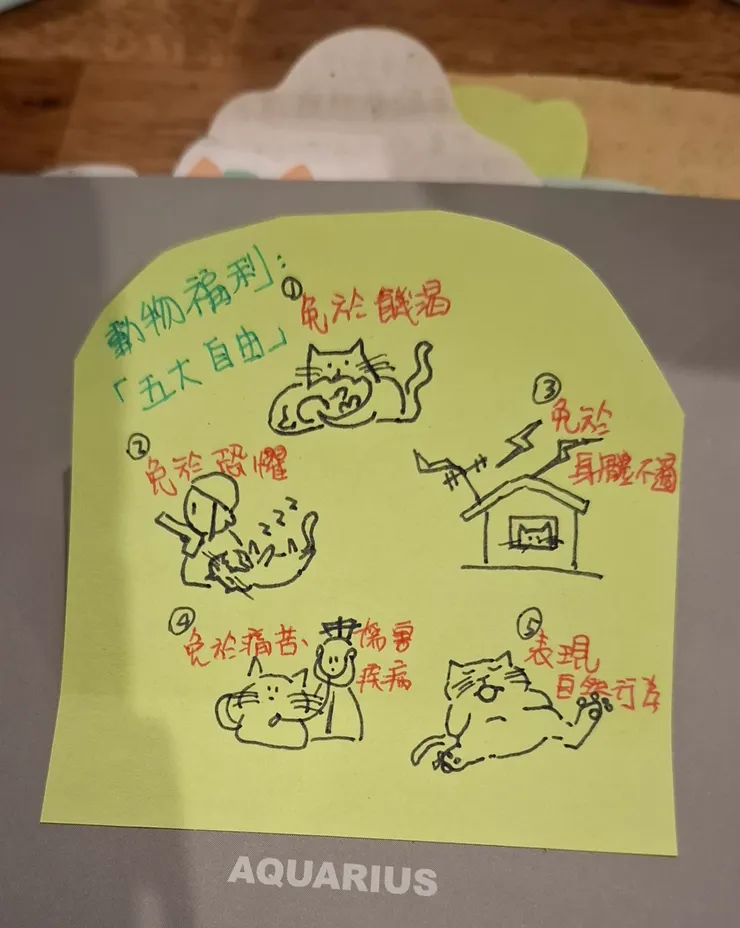 動物福利:
「五大自由」
① 免於饑渴
② 免於恐懼
zzz
③ 免於
身體不適
④ 免於痛苦、傷害
疾病
⑤ 表現
自然行為
AQUARIUS